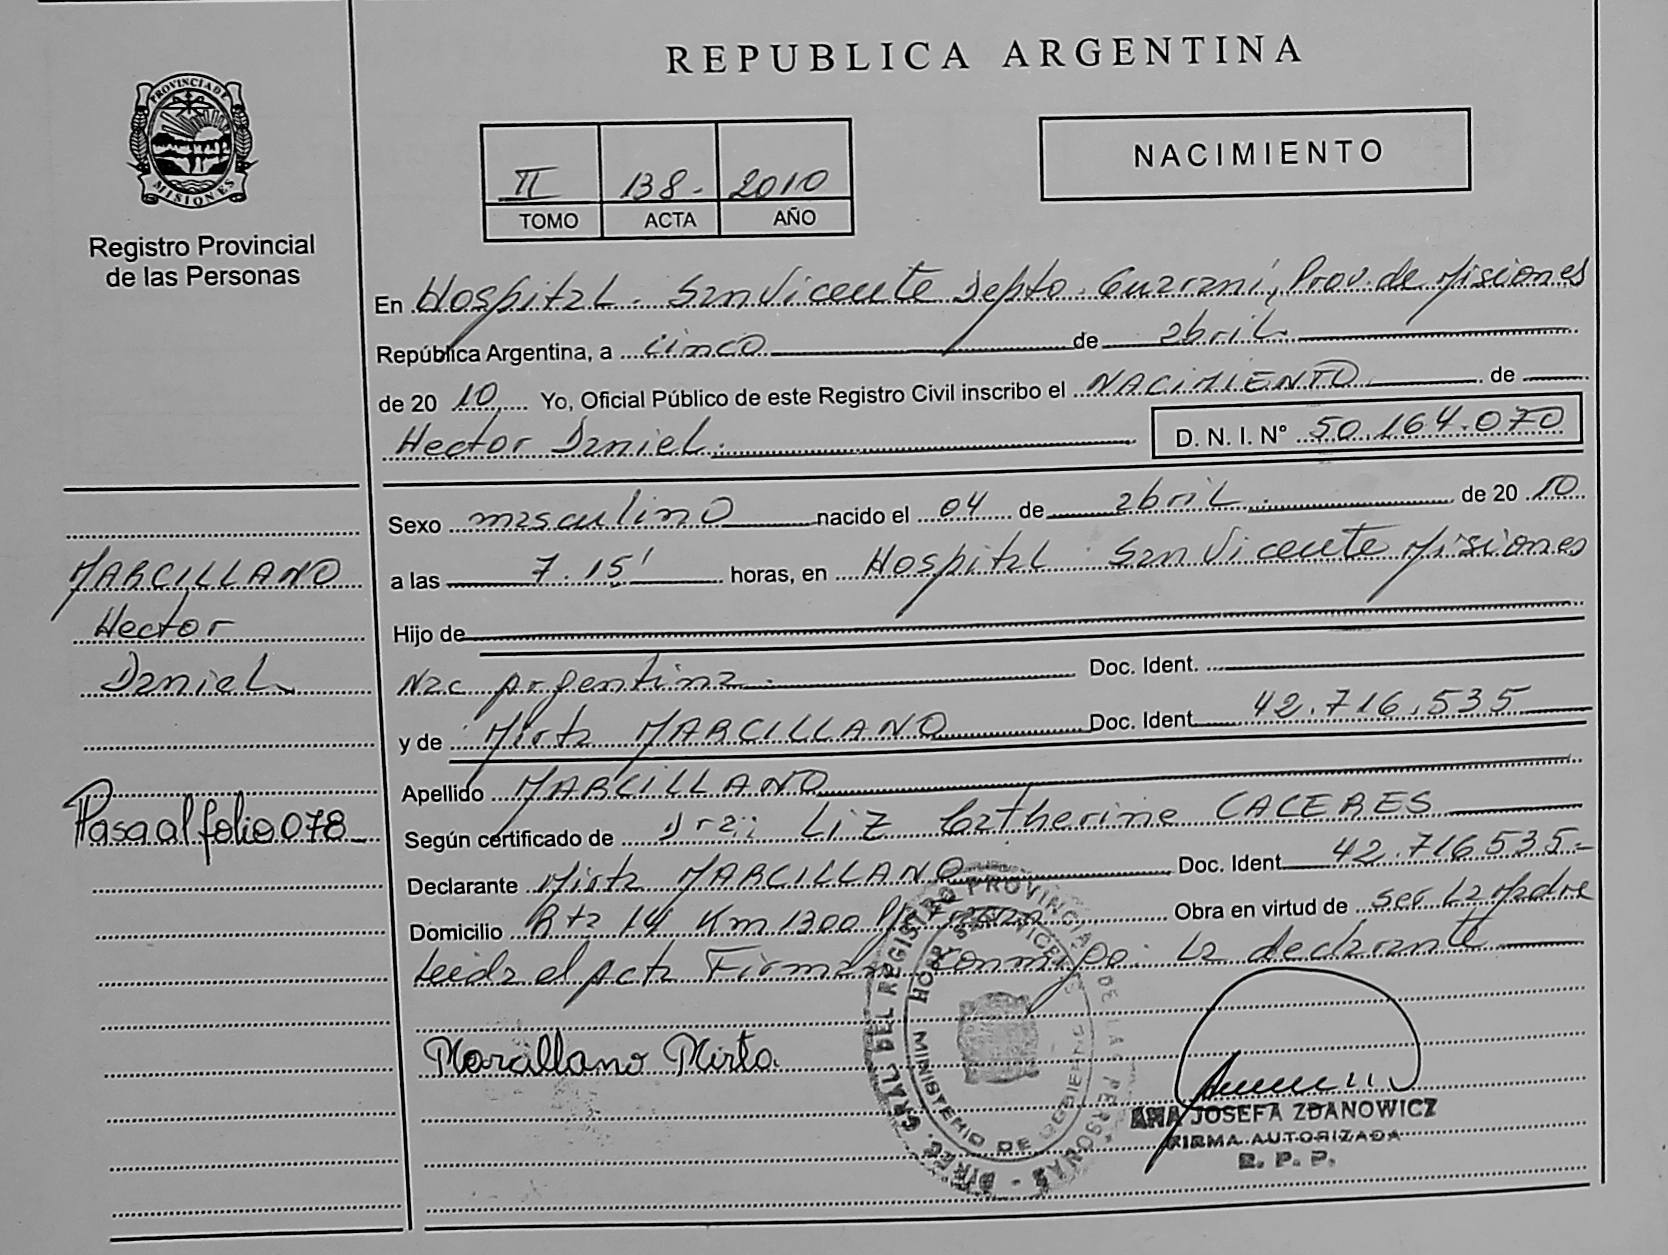 REPUBLICA ARGENTINA
PROVINCIA DE MISIONES
Registro Provincial
de las Personas
II 138.- 2010
TOMO ACTA AÑO
NACIMIENTO
En Hospital. San Vicente Depto. Guaraní, Prov. de Misiones
República Argentina, a cinco de abril
de 2010, Yo, Oficial Público de este Registro Civil inscribo el NACIMIENTO de
Hector Daniel. D. N. I. N° 50.164.070
Sexo masculino nacido el 04 de abril de 2010
a las 7.15' horas, en Hospital San Vicente Misiones
Hijo de
Nac Argentina. Doc. Ident.
y de Mirta MARCILLANO Doc. Ident. 42.716.535
Apellido MARCILLANO
Según certificado de Dra: Liz Catherine CACERES
Declarante Mirta MARCILLANO Doc. Ident. 42.716.535-
Domicilio Rta 14 Km 1300 Obra en virtud de ser La Madre
Leida el Acta Firman conmigo: La declarante
Marcillano Mirta
MARCILLANO
Hector
Daniel
Pasa al folio 078
DIREC. GRAL. DEL REGISTRO PROVINCIAL DE LAS PERSONAS
HOSP. SAN VICENTE
MINISTERIO DE GOBIERNO
ANA JOSEFA ZDANOWICZ
FIRMA AUTORIZADA
R. P. P.